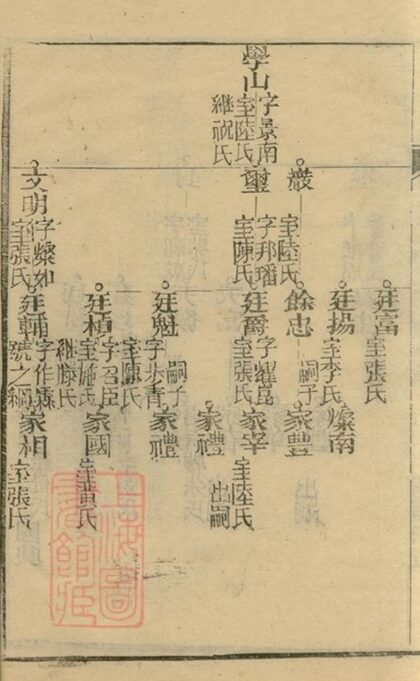 學山
字景南
室陸氏
繼祝氏
巖
室陸氏
璽
字邦璠
室陳氏
文明
字燦如
室張氏
廷富
室張氏
廷揚
室李氏
餘忠
嗣子
廷爵
字耀崑
室張氏
廷魁
嗣子
字步青
室陳氏
廷楨
字召臣
室施氏
繼滕氏
廷輔
字作霖
號之綱
燦南
家豐
出嗣
家宰
室陸氏
家禮
出嗣
家禮
家國
室黃氏
家相
室張氏
上海圖
書館藏